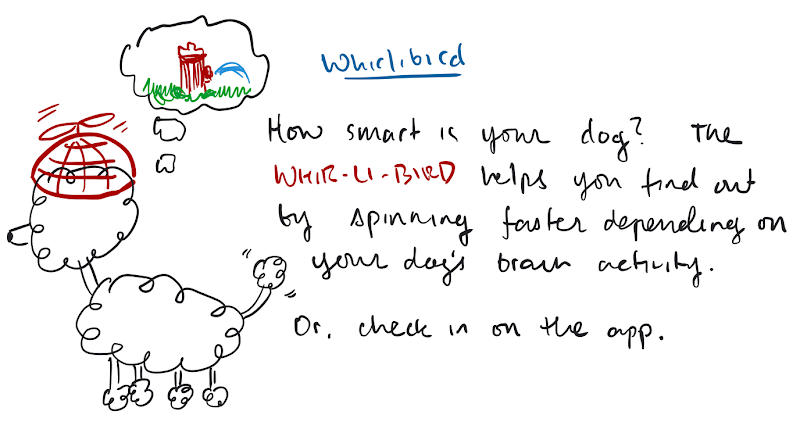 Whirlibird
How smart is your dog? The
WHIR-LI-BIRD helps you find out
by spinning faster depending on
your dog's brain activity.
Or, check in on the app.